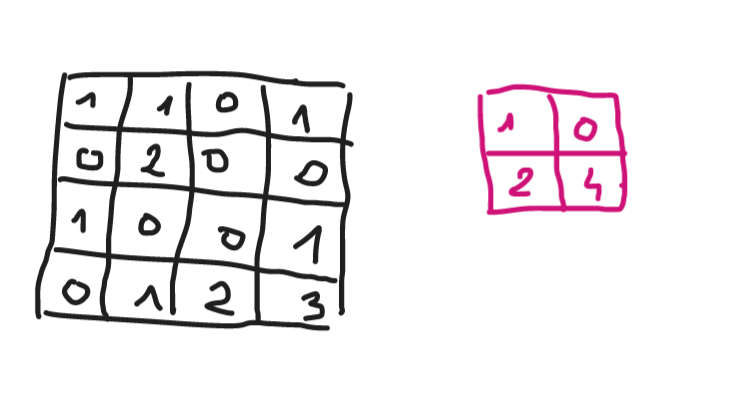 1 1 0 1
0 2 0 0
1 0 0 1
0 1 2 3
1 0
2 4